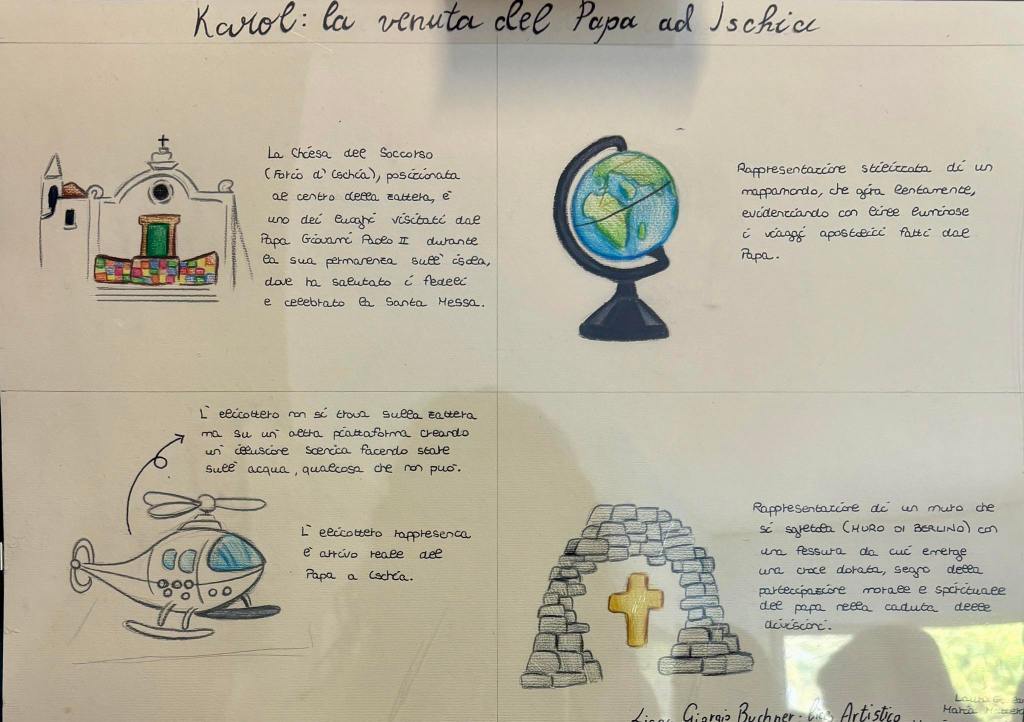 Karol: la venuta del Papa ad Ischia
La Chiesa del Soccorso
(Forio d'Ischia), posizionata
al centro della zattera, è
uno dei luoghi visitati dal
Papa Giovanni Paolo II durante
la sua permanenza sull'isola,
dove ha salutato i fedeli
e celebrato la Santa Messa.
Rappresentazione stilizzata di un
mappamondo, che gira lentamente,
evidenziando con linee luminose
i viaggi apostolici fatti dal
Papa.
L'elicottero non si trova sulla zattera
ma su un'altra piattaforma creando
un'illusione scenica facendo stare
sull'acqua, qualcosa che non può.
L'elicottero rappresenta
l'arrivo reale del
Papa a Ischia.
Rappresentazione di un muro che
si sgretola (MURO DI BERLINO) con
una fessura da cui emerge
una croce dorata, segno della
partecipazione morale e spirituale
del papa nella caduta delle
divisioni.
Giorgio Buchner - Liceo Artistico
Laura
Maria